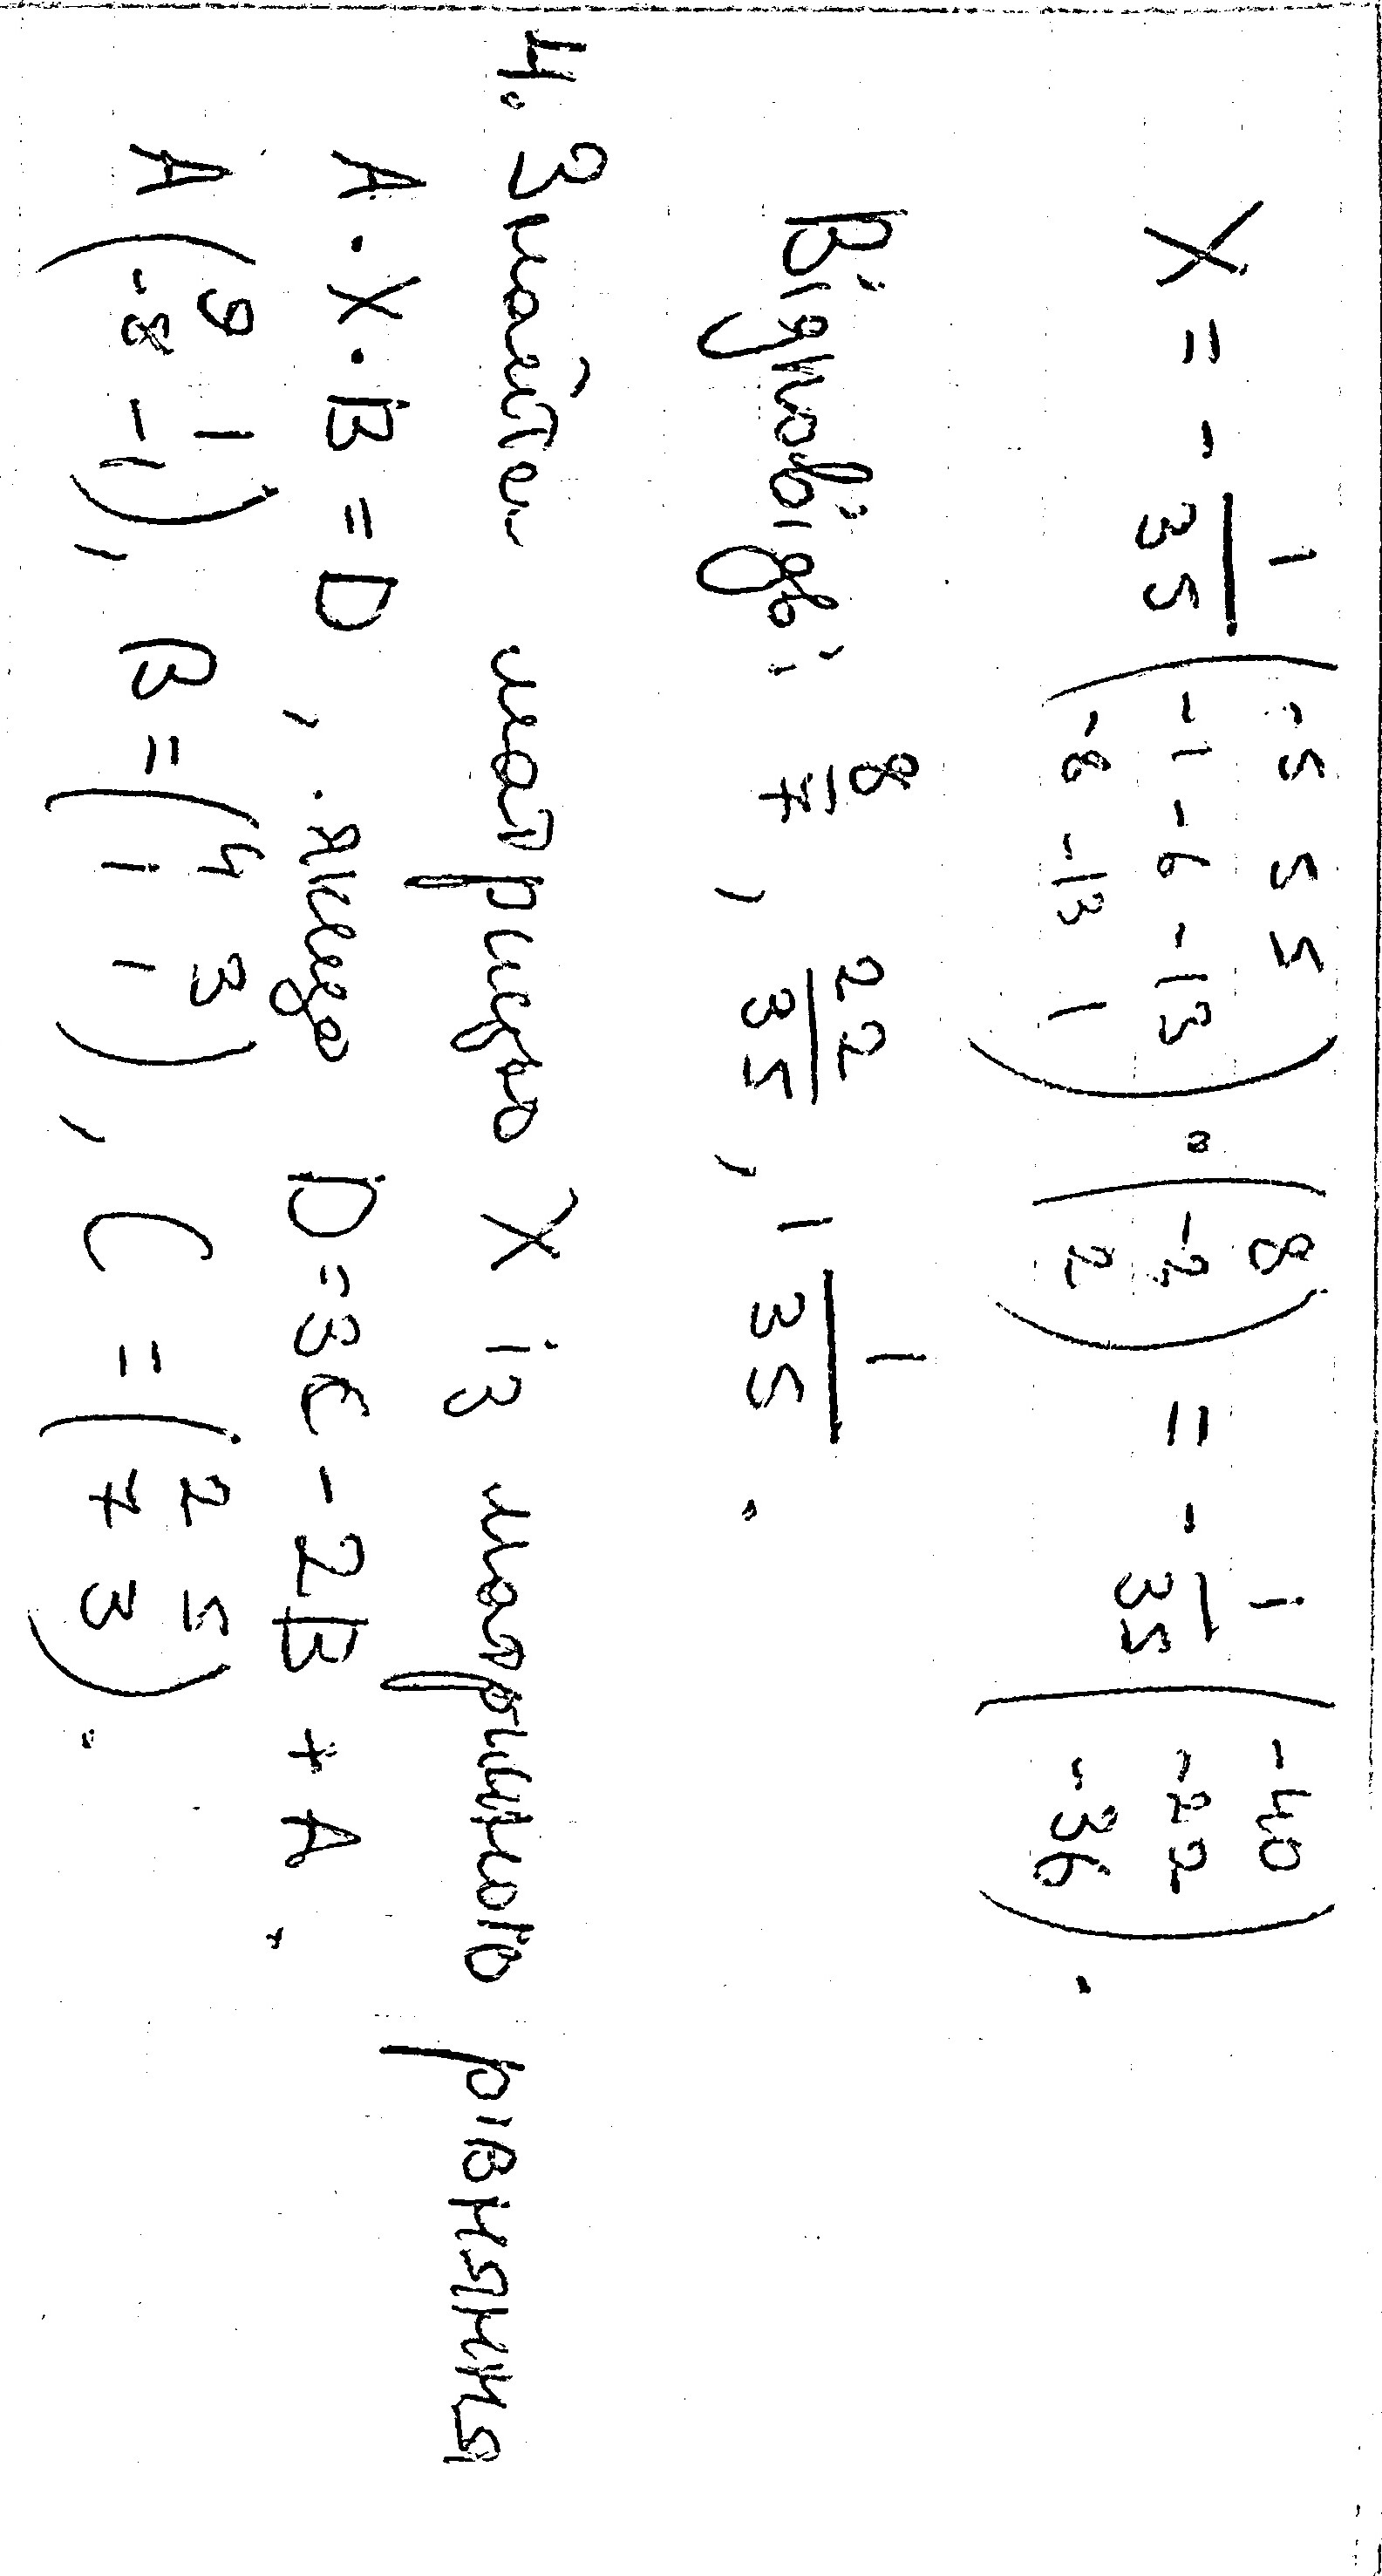 X = - 1/35 ( -5 5 5 ; -1 -6 -13 ; -8 -13 1 ) · ( 8 ; -2 ; 2 ) = - 1/35 ( -40 ; -22 ; -36 ) .
Відповідь: 8/7 , 22/35 , 1 1/35 .
4. Знайти матрицю X із матричного рівняння
A · X · B = D , якщо D = 3C - 2B + A .
A ( 9 1 ; -8 -1 ) , B = ( 4 3 ; 1 1 ) , C = ( 2 5 ; 7 3 ) .